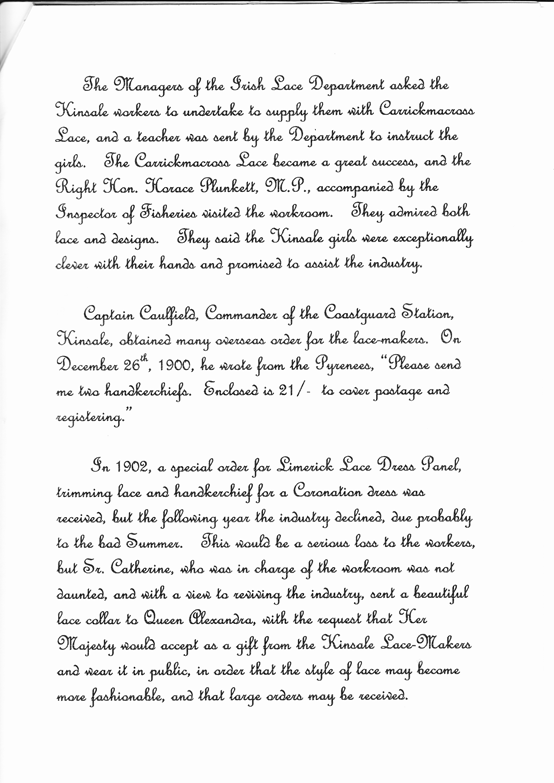 The Managers of the Irish Lace Department asked the
Kinsale workers to undertake to supply them with Carrickmacross
Lace, and a teacher was sent by the Department to instruct the
girls. The Carrickmacross Lace became a great success, and the
Right Hon. Horace Plunkett, M.P., accompanied by the
Inspector of Fisheries visited the workroom. They admired both
lace and designs. They said the Kinsale girls were exceptionally
clever with their hands and promised to assist the industry.
Captain Caulfield, Commander of the Coastguard Station,
Kinsale, obtained many overseas order for the lace-makers. On
December 26th, 1900, he wrote from the Pyrenees, “Please send
me two handkerchiefs. Enclosed is 21/- to cover postage and
registering.”
In 1902, a special order for Limerick Lace Dress Panel,
trimming lace and handkerchief for a Coronation dress was
received, but the following year the industry declined, due probably
to the bad Summer. This would be a serious loss to the workers,
but Sr. Catherine, who was in charge of the workroom was not
daunted, and with a view to reviving the industry, sent a beautiful
lace collar to Queen Alexandra, with the request that Her
Majesty would accept as a gift from the Kinsale Lace-Makers
and wear it in public, in order that the style of lace may become
more fashionable, and that large orders may be received.